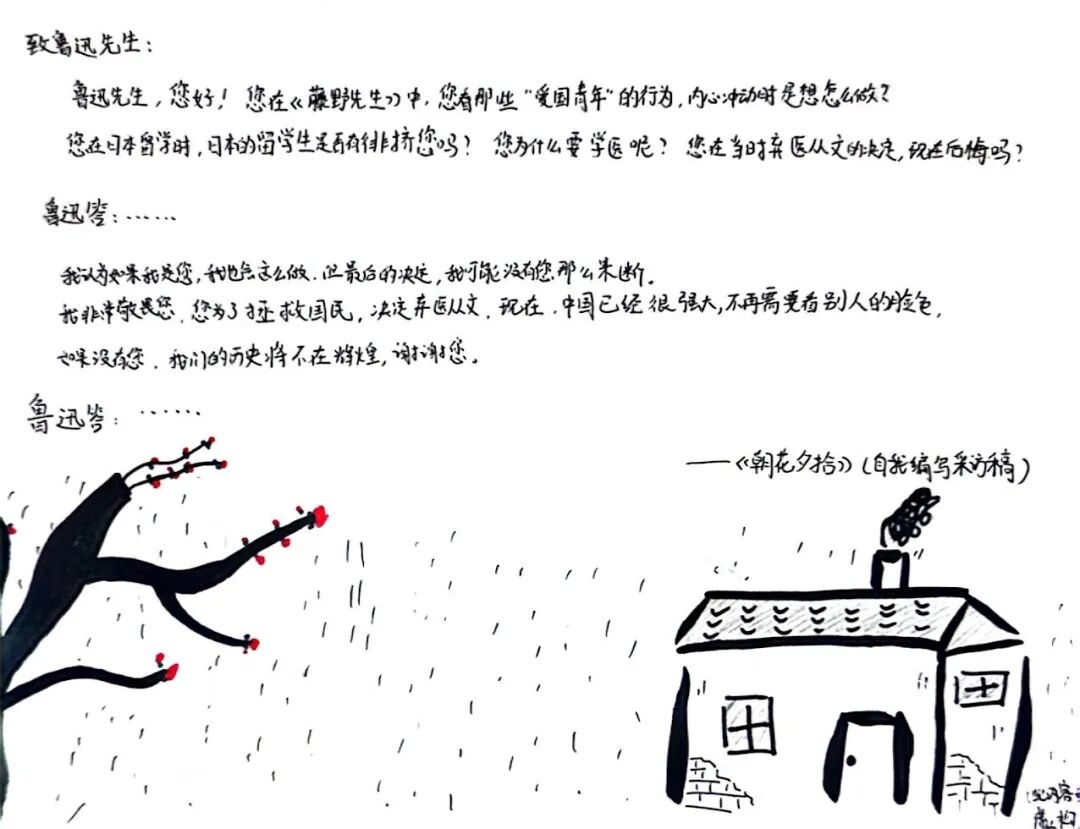 致鲁迅先生：
鲁迅先生，您好！您在《藤野先生》中，您看那些“爱国青年”的行为，内心冲动时是想怎么做？
您在日本留学时，日本的留学生是否有排挤您吗？您为什么要学医呢？您在当时弃医从文的决定，现在后悔吗？
鲁迅答：……
我认为如果我是您，我也会这么做．但最后的决定，我可能没有您那么果断．
我非常敬畏您．您为了拯救国民，决定弃医从文．现在．中国已经很强大，不再需要看别人的脸色．
如果没有您．我们的历史将不在辉煌，谢谢您。
鲁迅答：……
——《朝花夕拾》（自我编写采访稿）
虚构